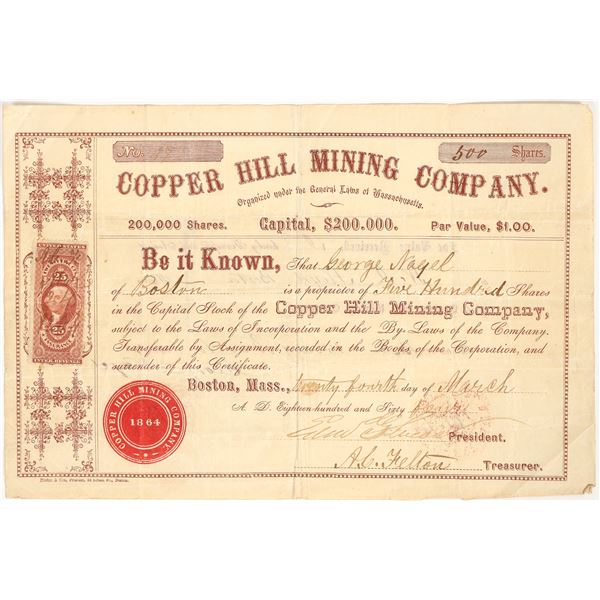 No.
500 Shares.
COPPER HILL MINING COMPANY.
Organized under the General Laws of Massachusetts.
200,000 Shares. Capital, $200.000. Par Value, $1.00.
Be it Known, That George Nagel
of Boston is a proprietor of Five Hundred Shares
in the Capital Stock of the Copper Hill Mining Company,
subject to the Laws of Incorporation and the By-Laws of the Company.
Transferable by Assignment, recorded in the Books of the Corporation, and
surrender of this Certificate.
Boston, Mass., twenty fourth day of March
A. D. Eighteen hundred and Sixty
President.
A.C. Felton Treasurer.
COPPER HILL MINING COMPANY.
1864
25
25
INTER. REVENUE